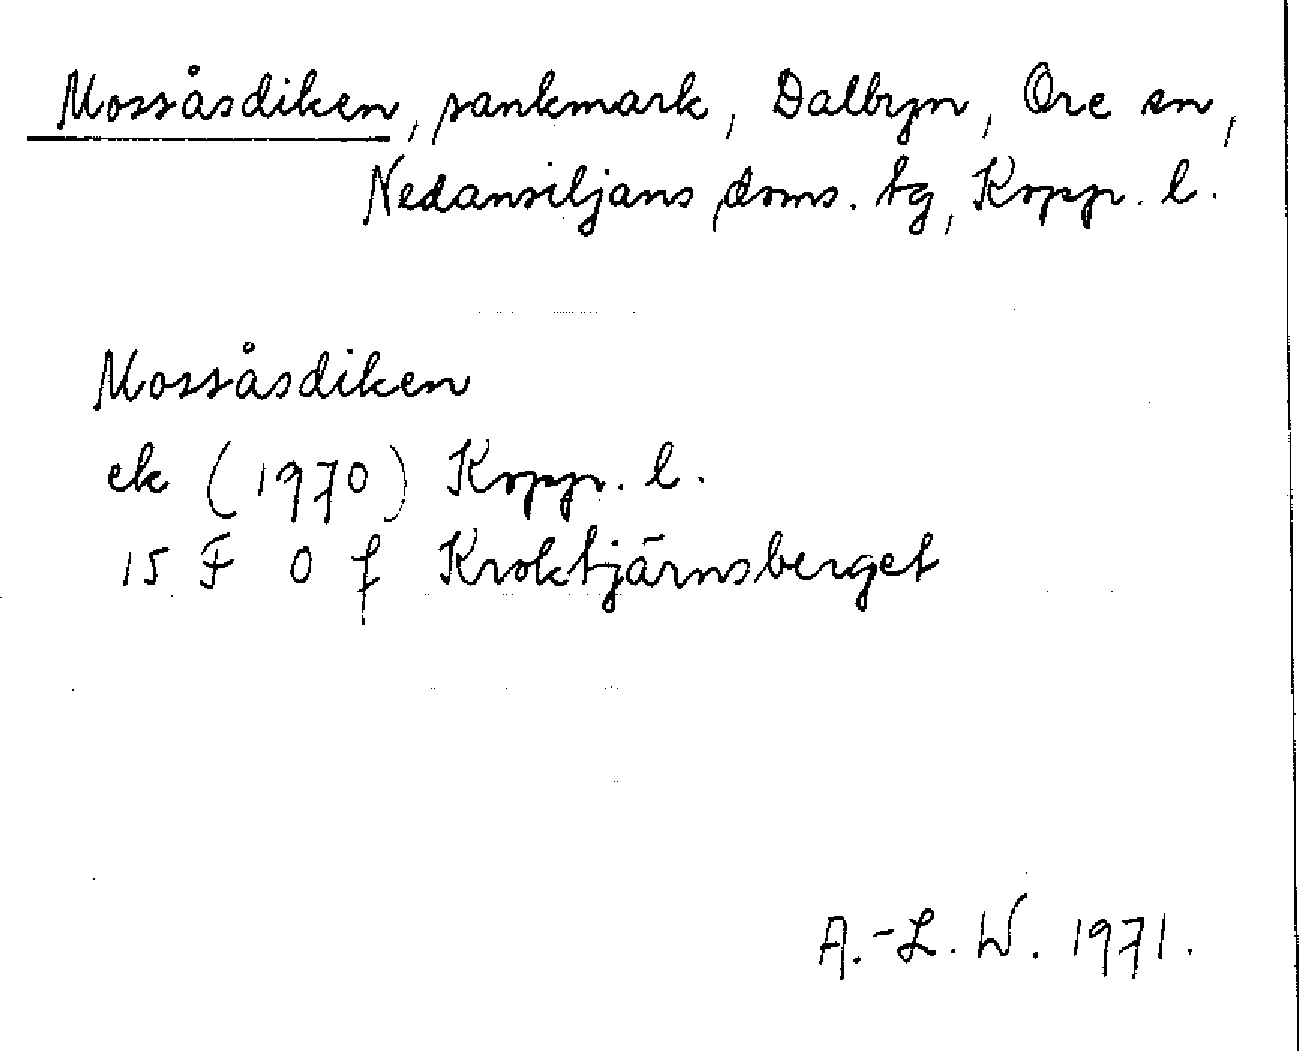 Mossåsdiken, sankmark, Dalbyn, Ore sn,
Nedansiljans doms. tg, Kopp. l.
Mossåsdiken
ek (1970) Kopp. l.
15 F 0 f Kroktjärnsberget
A.-L. W. 1971.